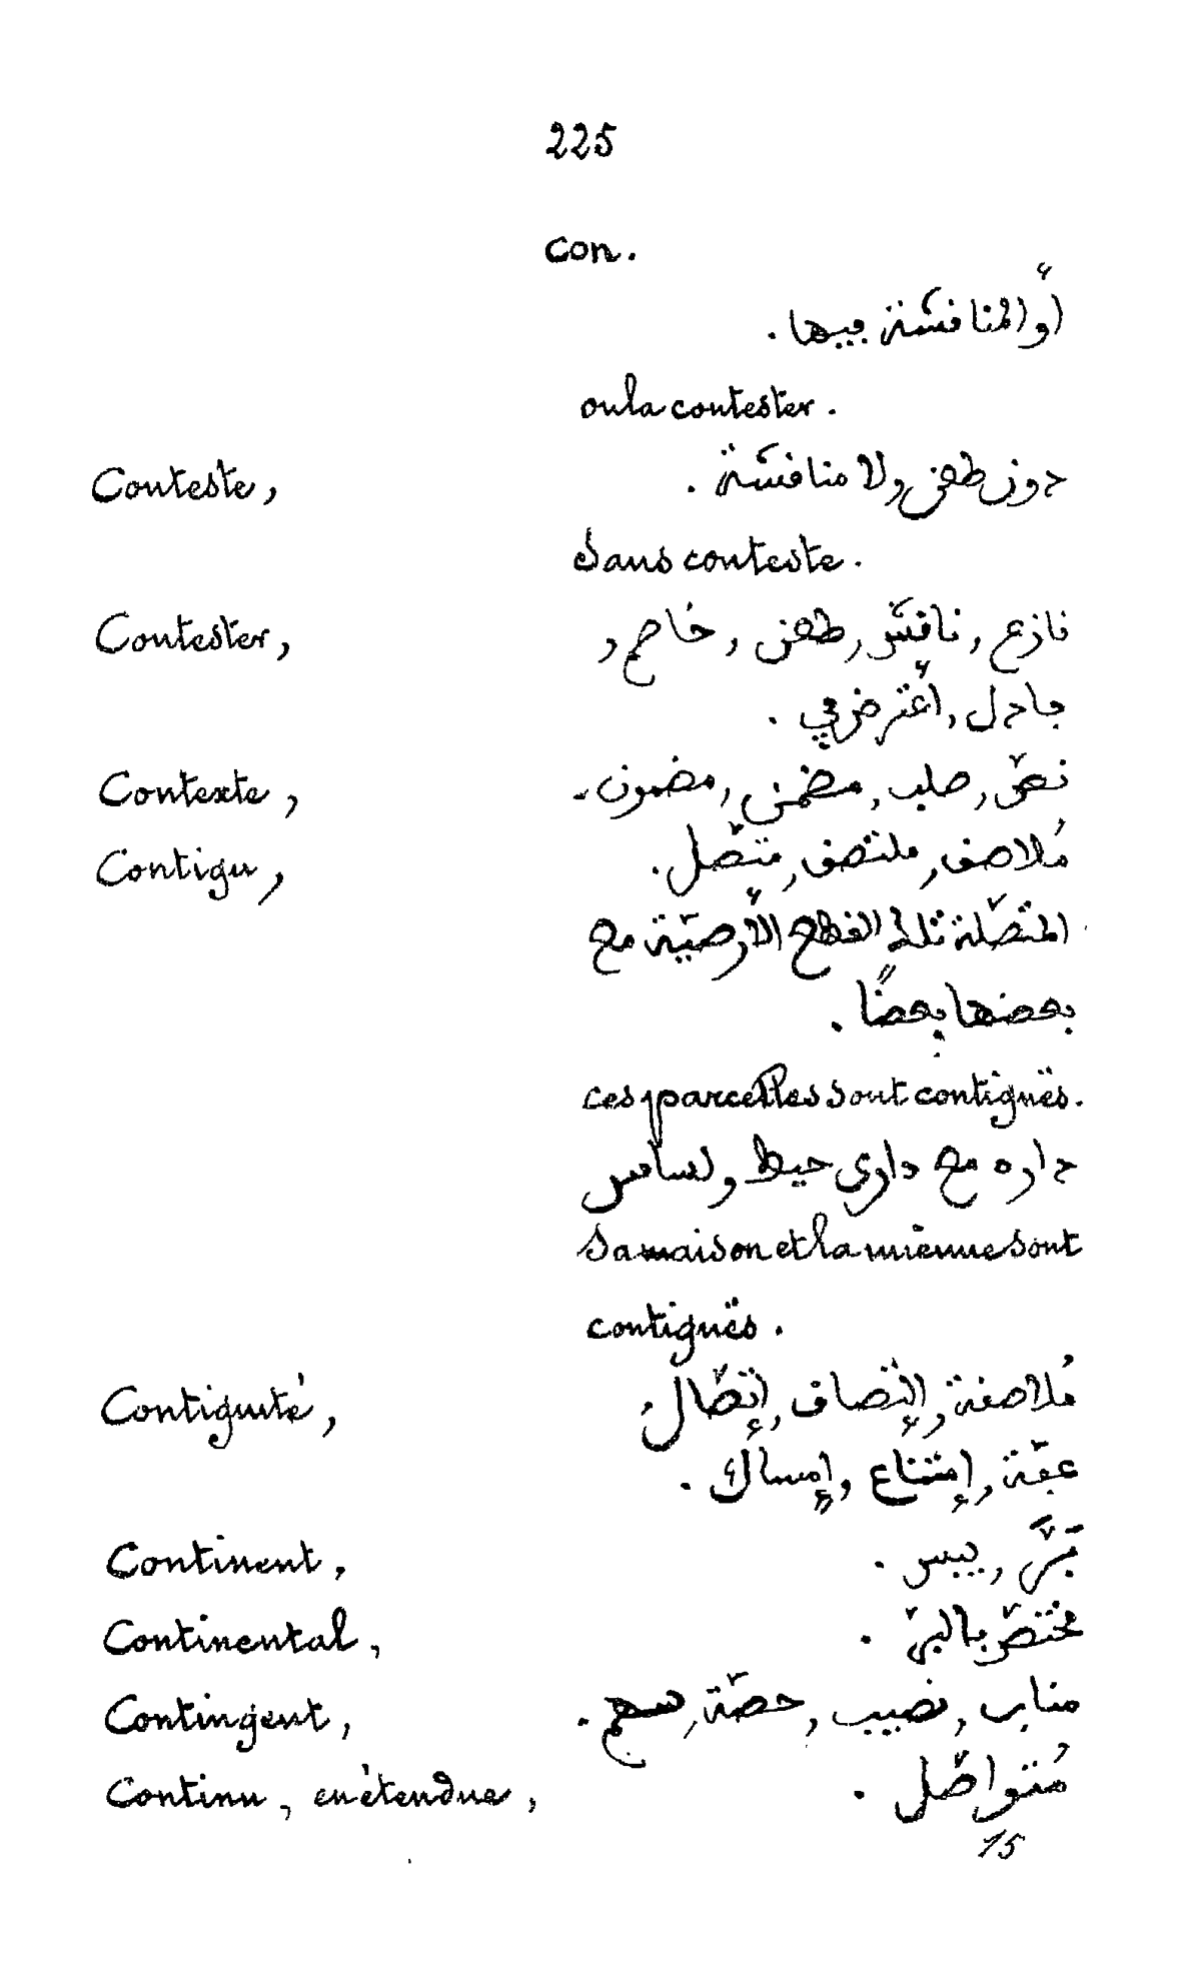 225
con.
أو المنافشة فيها.
ou la contester.
Conteste, دون طعن ولا منافشة.
sans conteste.
Contester, نازع, نافش, طعن, خاصم,
جادل, اعترض في.
Contexte, نصّ, صلب, مضمن, مضمون.
Contigu, مُلاصق, ملتصق, متّصل.
المتّصلة تلك القطع الأرضيّة مع
بعضها بعضًا.
ces parcelles sont contiguës.
داره مع داري حيط ولساس
Sa maison et la mienne sont
contiguës.
Contiguité, مُلاصقة, إلتصاق, إتّصال,
عفّة, إمتناع, إمساك.
Continent, بَرّ, يبس.
Continental, مختصّ بالبرّ.
Contingent, مناب, نصيب, حصّة, سهم.
Continu, en étendue, مُتواصل.
15